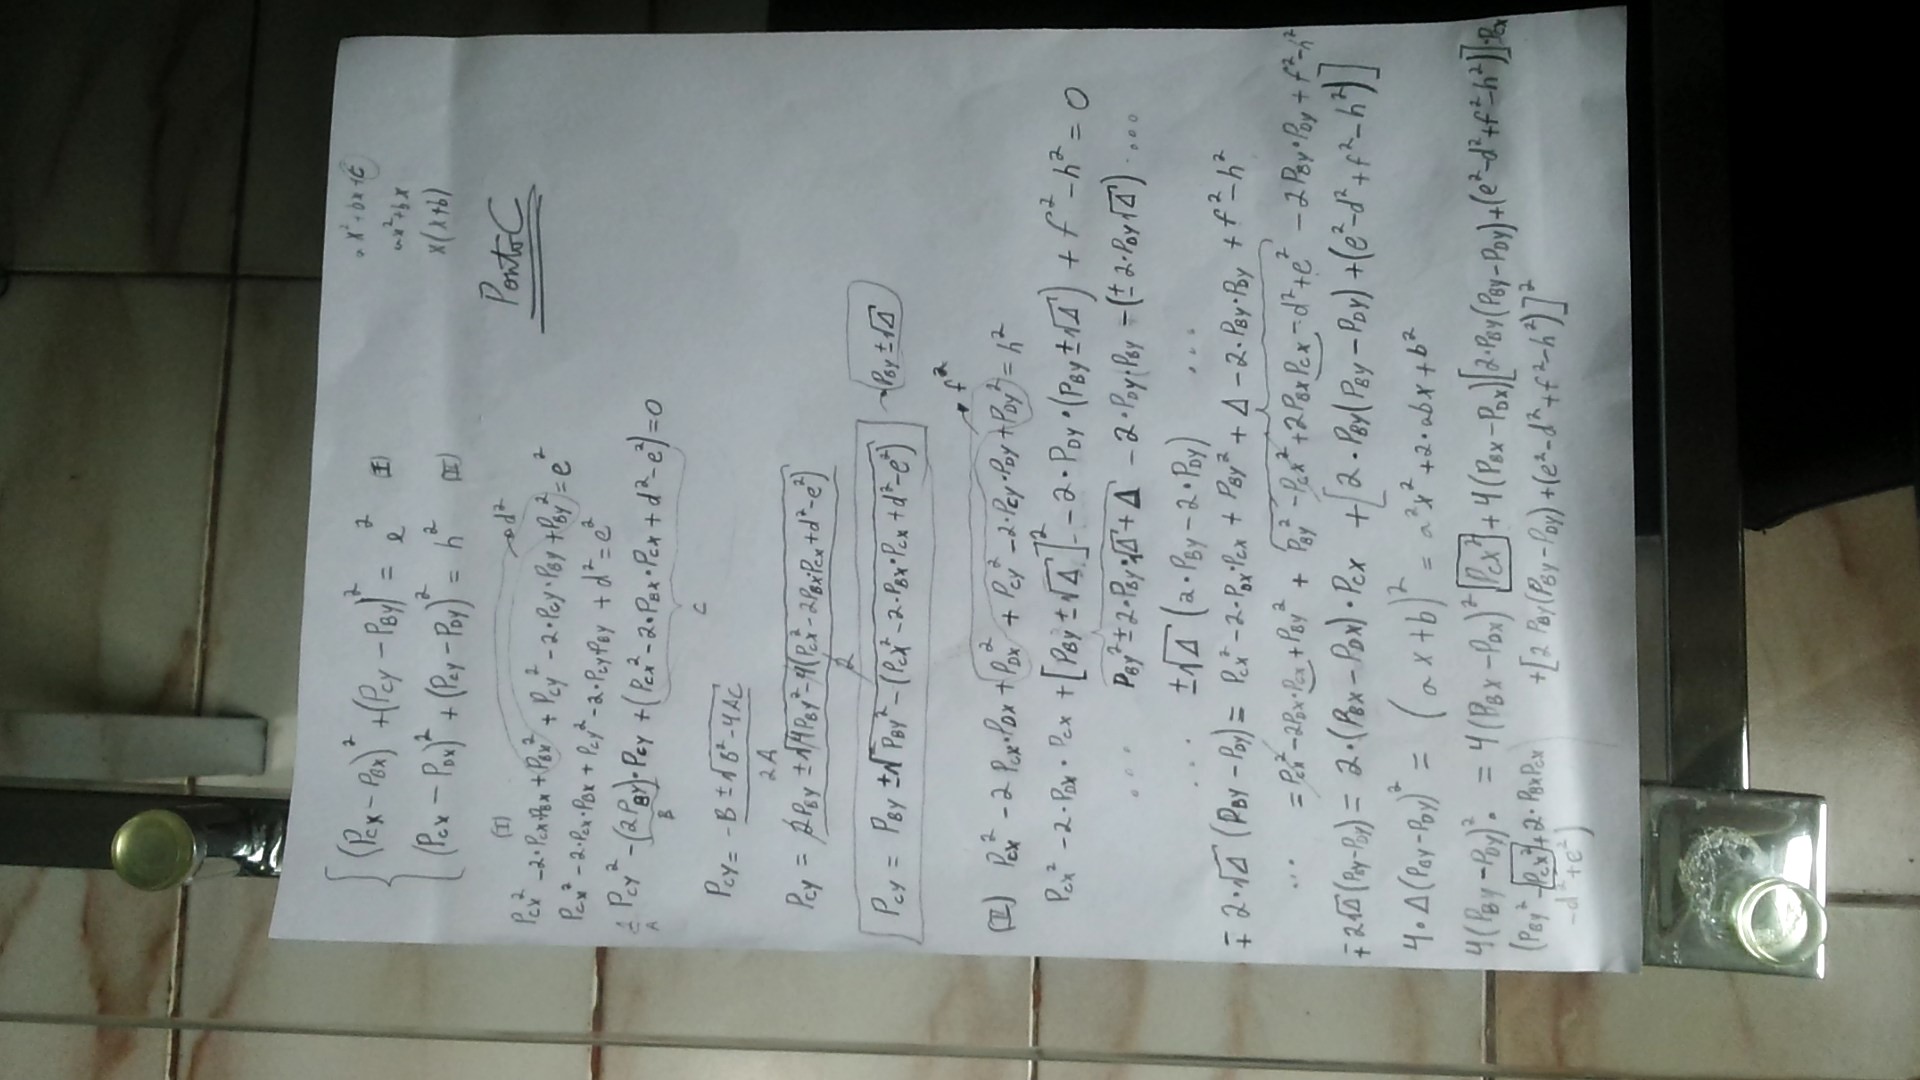 (P_CX - P_BX)² + (P_CY - P_BY)² = e² (I)
(P_CX - P_DX)² + (P_CY - P_DY)² = h² (II)
x² + bx + c
ax² + bx
x(x+b)
Ponto C
(I)
P_CX² - 2·P_CX·P_BX + P_BX² + P_CY² - 2·P_CY·P_BY + P_BY² = e² → d²
P_CX² - 2·P_CX·P_BX + P_CY² - 2·P_CY P_BY + d² = e²
P_CY² - (2P_BY)·P_CY + (P_CX² - 2·P_BX·P_CX + d² - e²) = 0
A B C
P_CY = -B ± √(B² - 4AC) / 2A
P_CY = 2P_BY ± √(4P_BY² - 4(P_CX² - 2P_BX·P_CX + d² - e²)) / 2
P_CY = P_BY ± √(P_BY² - (P_CX² - 2·P_BX·P_CX + d² - e²)) → P_BY ± √Δ
(II) P_CX² - 2 P_CX·P_DX + P_DX² + P_CY² - 2·P_CY·P_DY + P_DY² = h² → f²
P_CX² - 2·P_DX·P_CX + [P_BY ± √Δ]² - 2·P_DY·(P_BY ± √Δ) + f² - h² = 0
... P_BY² ± 2·P_BY·√Δ + Δ - 2·P_DY·P_BY - (± 2·P_DY √Δ) ...
... ±√Δ (2·P_BY - 2·P_DY) ...
∓ 2·√Δ (P_BY - P_DY) = P_CX² - 2·P_DX·P_CX + P_BY² + Δ - 2·P_BY·P_DY + f² - h²
... = P_CX² - 2P_DX·P_CX + P_BY² + P_BY² - P_CX² + 2P_BX P_CX - d² + e² - 2P_BY·P_DY + f² - h²
∓ 2√Δ (P_BY - P_DY) = 2·(P_BX - P_DX)·P_CX + [2·P_BY(P_BY - P_DY) + (e² - d² + f² - h²)]
4·Δ(P_BY - P_DY)² = (ax + b)² = a²x² + 2·abx + b²
4(P_BY - P_DY)²· = 4(P_BX - P_DX)² P_CX² + 4(P_BX - P_DX)[2·P_BY(P_BY - P_DY) + (e² - d² + f² - h²)]·P_CX
(P_BY² - P_CX² + 2·P_BX P_CX + [2 P_BY(P_BY - P_DY) + (e² - d² + f² - h²)]²
- d² + e²)